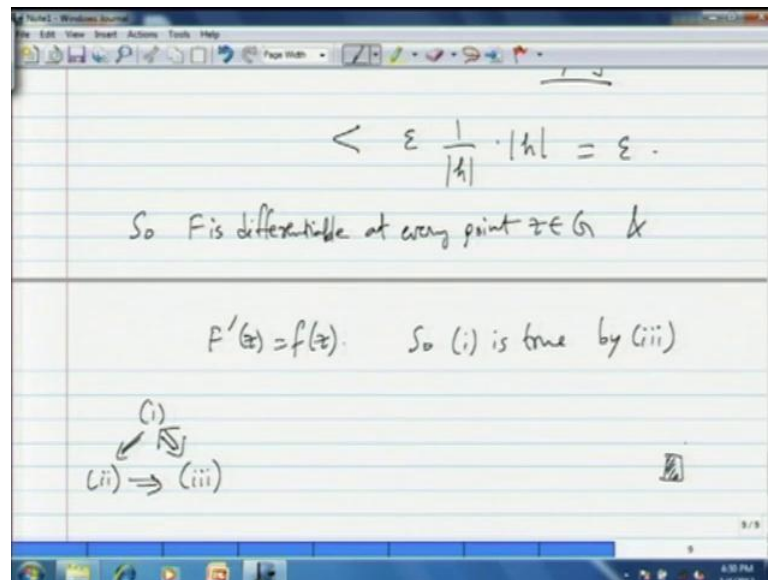 Note1 - Windows Journal
File Edit View Insert Actions Tools Help
Page Width
< ε 1/|h| · |h| = ε .
So F is differentiable at every point z ∈ G &
F'(z) = f(z). So (i) is true by (iii)
(i)
(ii) ⇒ (iii)
9/9
9
6:30 PM